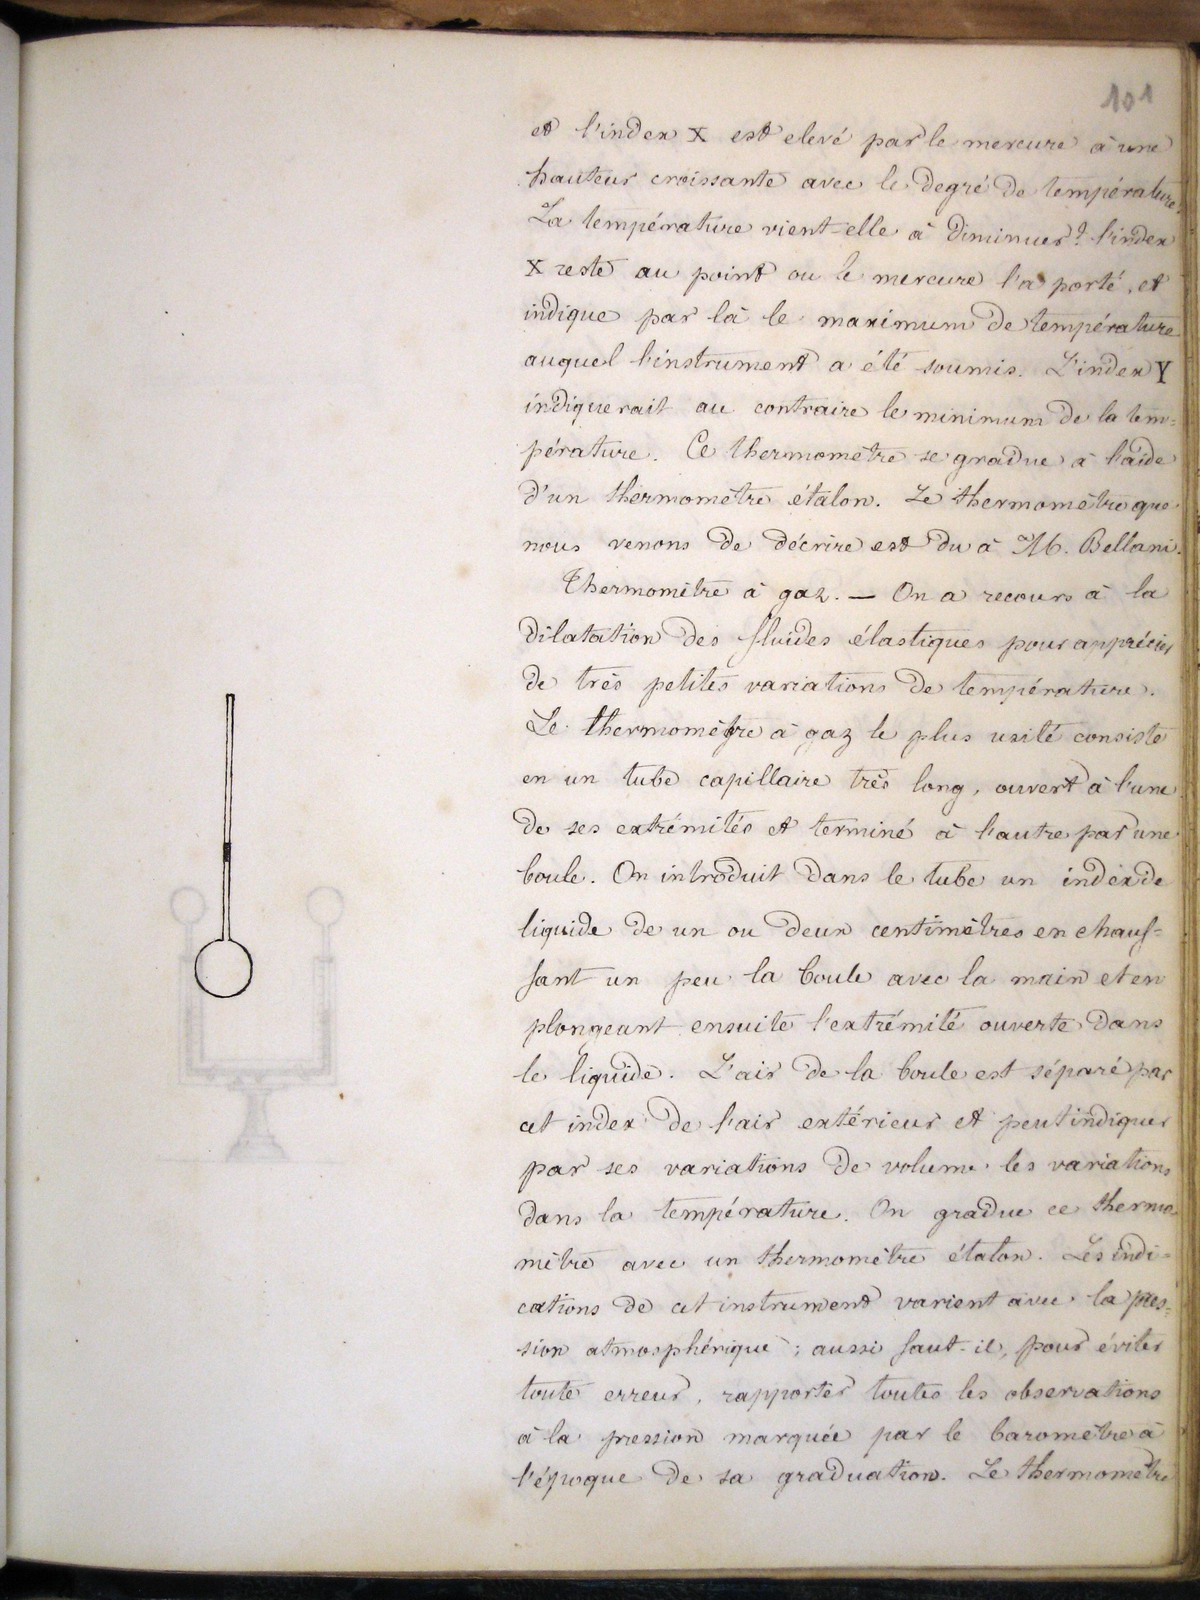 101
et l'index X est elevé par le mercure à une
hauteur croissante avec le degré de température.
La température vient-elle à diminuer? l'index
X reste au point ou le mercure l'a porté, et
indique par là le maximum de température
auquel l'instrument a été soumis. L'index Y
indiquerait au contraire le minimum de la tem=
pérature. Ce thermomètre se gradue à l'aide
d'un thermomètre étalon. Le thermomètre que
nous venons de décrire est du à M. Bellani.
Thermomètre à gaz. — On a recours à la
dilatation des fluides élastiques pour apprécier
de très petites variations de température.
Le thermomètre à gaz le plus usité consiste
en un tube capillaire très long, ouvert à l'une
de ses extrémités et terminé à l'autre par une
boule. On introduit dans le tube un index de
liquide de un ou deux centimètres en chauf=
fant un peu la boule avec la main et en
plongeant ensuite l'extrémité ouverte dans
le liquide. L'air de la boule est séparé par
cet index de l'air extérieur et peut indiquer
par ses variations de volume les variations
dans la température. On gradue ce thermo=
mètre avec un thermomètre étalon. Les indi=
cations de cet instrument varient avec la pres=
sion atmosphérique; aussi faut-il, pour éviter
toute erreur, rapporter toutes les observations
à la pression marquée par le baromètre à
l'époque de sa graduation. Le thermomètre